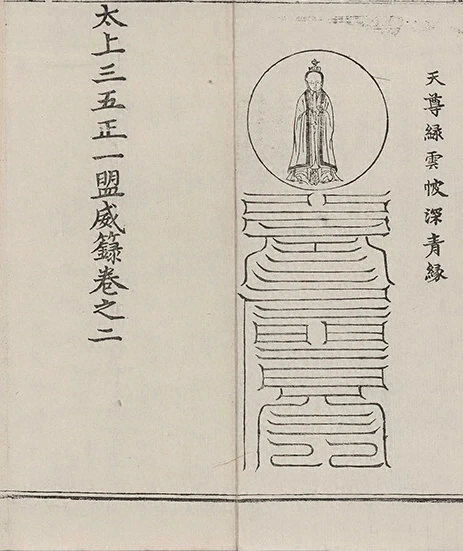 天尊緑雲帔深青縁
太上三五正一盟威籙卷之二